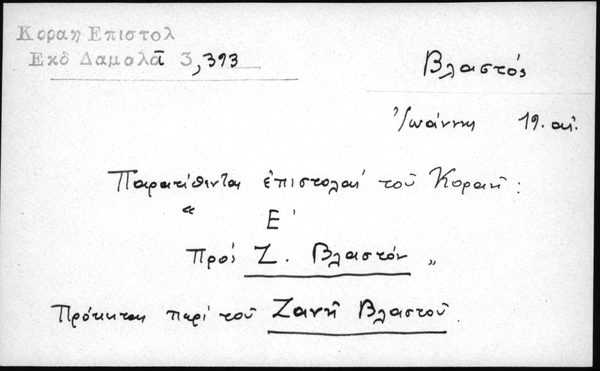 Κοραη Επιστολ
Εκδ Δαμολᾶ 3,393
Βλαστός
Ἰωάννης 19. αἰ.
Παρατίθενται ἐπιστολαί τοῦ Κοραῆ:
“ Ε'
Πρός Ζ. Βλαστόν „
Πρόκειται περί τοῦ Ζανῆ Βλαστοῦ.